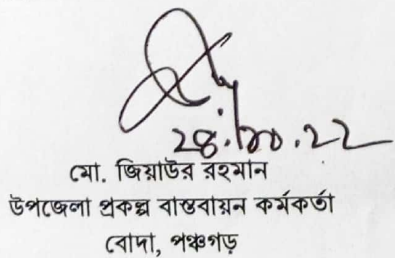 ২৪.১০.২২
মো. জিয়াউর রহমান
উপজেলা প্রকল্প বাস্তবায়ন কর্মকর্তা
বোদা, পঞ্চগড়